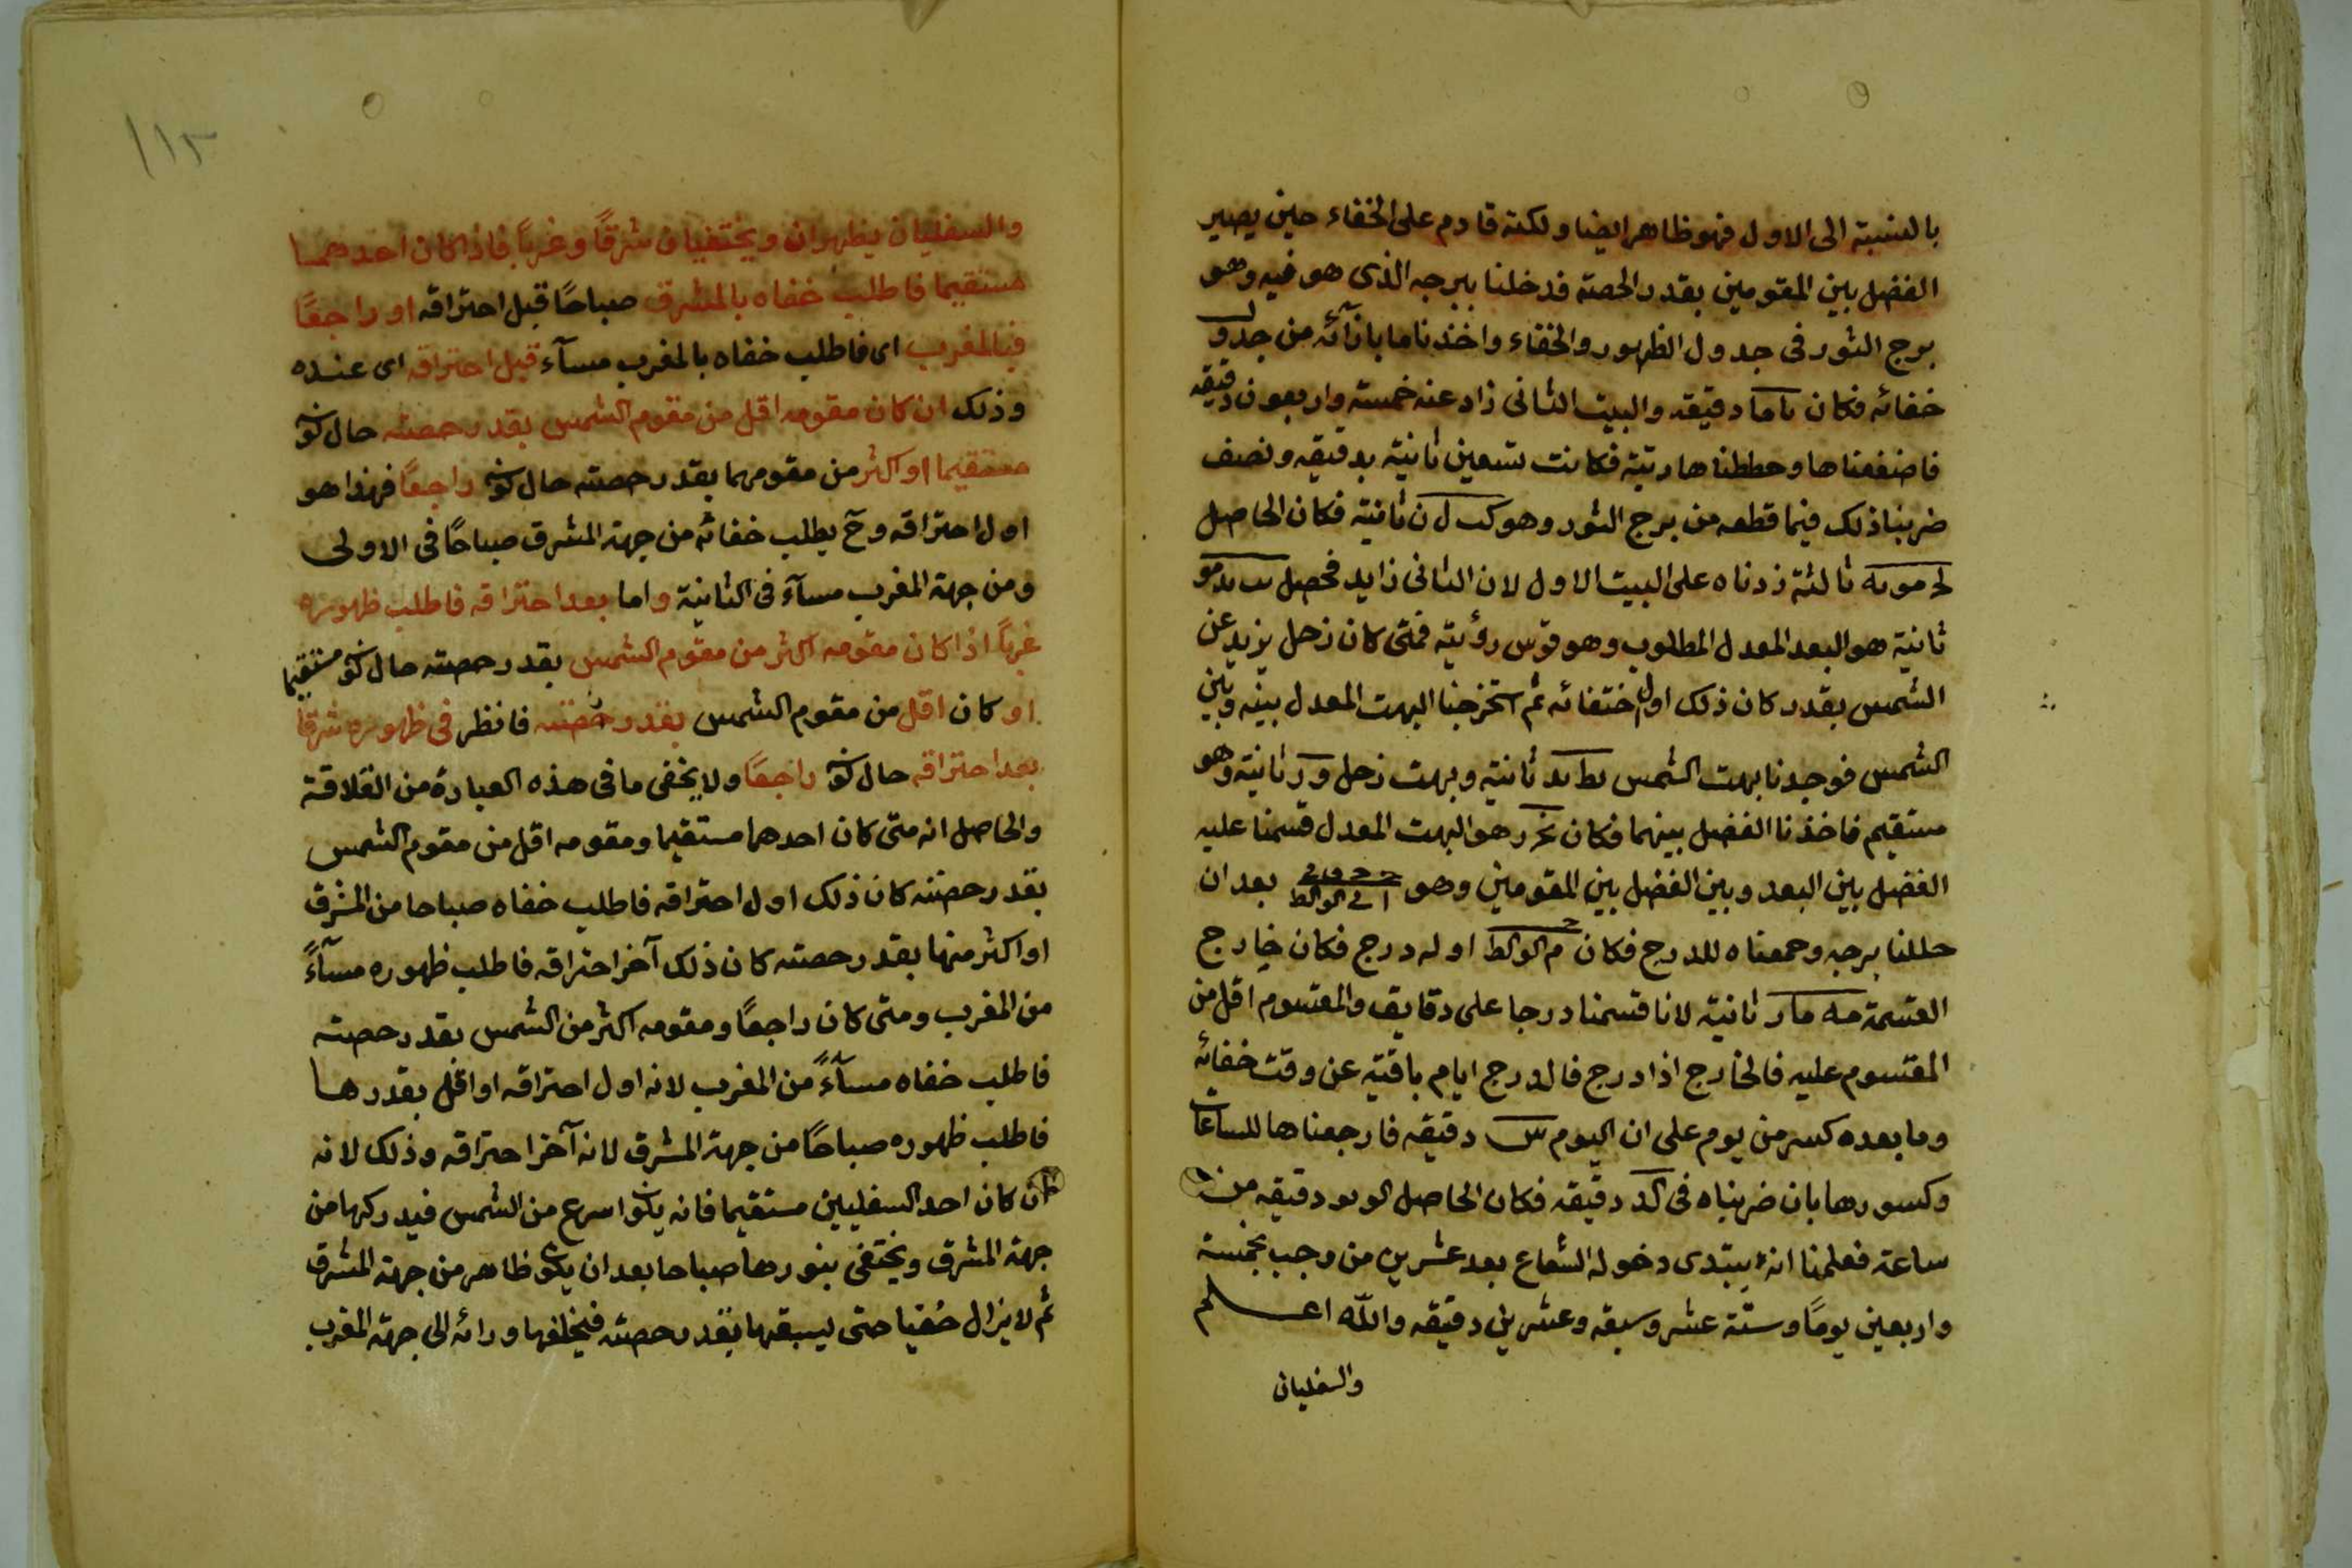 بالنسبة الى الاول فهو ظاهر ايضا ولكنه قادم على الخفاء حين يصير
الفضل بين المقومين بقدر الحصة فدخلنا ببرجه الذى هو فيه وهو
برج الثور فى جدول الظهور والخفاء واخذنا ما بازآئه من جدول
خفائه فكان دقيقه والبيت الثانى زاد عنه خمسة واربعون دقيقه
فاضفعناها وحططناها رتبة فكانت تسعين ثانية بدقيقه ونصف
ضربنا ذلك فيما قطعه من برج الثور وهو كب ل ن ثانية فكان الحاصل
ثالثة زدناه على البيت الاول لان الثانى زايد فحصل
ثانية هو البعد المعدل المطلوب وهو قوس رؤيته فمتى كان زحل يزيد عن
الشمس بقدر كان ذلك اول اختفائه ثم استخرجنا البهت المعدل بينه وبين
الشمس فوجدنا بهت الشمس ثانية وبهت زحل ثانية وهو
مستقيم فاخذنا الفضل بينهما فكان هو البهت المعدل قسمنا عليه
الفضل بين البعد وبين الفضل بين المقومين وهو بعد ان
حللنا برجه وجمعناه للدرج فكان اوله درج فكان خارج
القسمة ثانية لانا قسمنا درجا على دقايق والمقسوم اقل من
المقسوم عليه فالخارج اذا درج فالدرج ايام باقية عن وقت خفائه
وما بعده كسر من يوم على ان اليوم س دقيقه فارجعناها للساعات
وكسورها بان ضربناه فى كد دقيقه فكان الحاصل دقيقه من
ساعة فعلمنا انه يبتدى دخوله الشعاع بعد عشرين من رجب بخمسة
واربعين يومًا وستة عشر وسبعة وعشرين دقيقه والله اعلم
والسفليان
١١٣
والسفليان يظهران ويختفيان شرقًا وغربًا فاذا كان احدهما
مستقيما فاطلب خفاه بالمشرق صباحًا قبل احتراقه او راجعًا
فبالمغرب اى فاطلب خفاه بالمغرب مسآء قبل احتراقه اى عنده
وذلك ان كان مقومه اقل من مقوم الشمس بقدر حصته حال كونه
مستقيما او اكثر من مقومهما بقدر حصته حال كونه راجعًا فهذا هو
اول احتراقه وح يطلب خفائه من جهة المشرق صباحًا فى الاولى
ومن جهة المغرب مسآء فى الثانية واما بعد احتراقه فاطلب ظهوره
غربًا اذا كان مقومه اكثر من مقوم الشمس بقدر حصته حال كونه مستقيما
او كان اقل من مقوم الشمس بقدر حصته فانظر فى ظهوره شرقا
بعد احتراقه حال كونه راجعًا ولا يخفى ما فى هذه العبارة من القلاقة
والحاصل انه متى كان احدهما مستقيما ومقومه اقل من مقوم الشمس
بقدر حصته كان ذلك اول احتراقه فاطلب خفاه صباحا من المشرق
او اكثر منها بقدر حصته كان ذلك آخر احتراقه فاطلب ظهوره مسآءً
من المغرب ومتى كان راجعًا ومقومه اكثر من الشمس بقدر حصته
فاطلب خفاه مسآءً من المغرب لانه اول احتراقه او اقل بقدرها
فاطلب ظهوره صباحًا من جهة المشرق لانه آخر احتراقه وذلك لانه
ان كان احد السفليين مستقيما فانه يكون اسرع من الشمس فيدركها من
جهة المشرق ويختفى بنورها صباحا بعد ان يكون ظاهر من جهة المشرق
ثم لا يزال خفيا حتى يسبقها بقدر حصته فيخلفها ورائه الى جهة المغرب